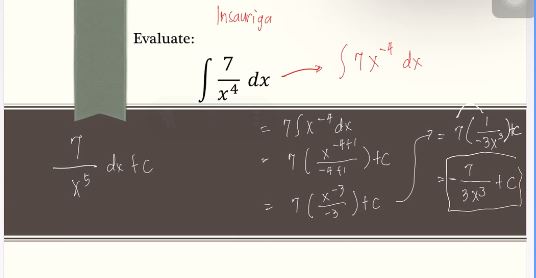 Insauriga
Evaluate:
∫ 7/x⁴ dx → ∫ 7x⁻⁴ dx
7/x⁵ dx + C
= 7∫x⁻⁴dx
= 7(x⁻⁴⁺¹/-4+1)+C
= 7(x⁻³/-3)+C
= 7(1/-3x³)+C
= -7/3x³ + C